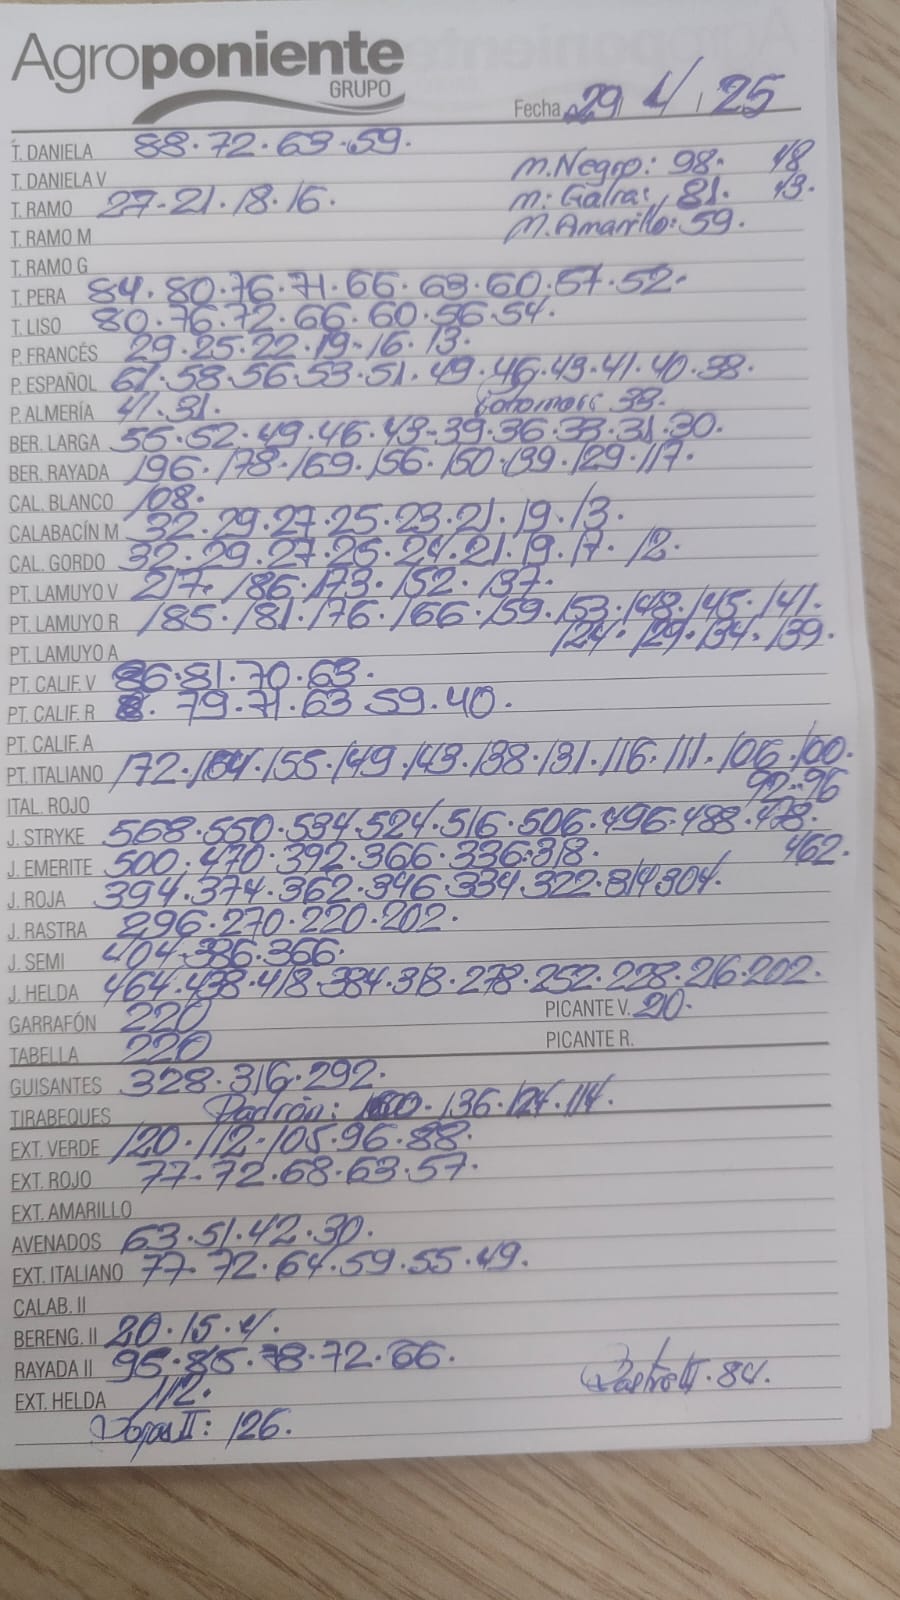 Agroponiente
GRUPO
Fecha 29 / 4 / 25
T. DANELA 88. 72. 63. 59.
T. DANIELA V M. Negro: 98. 48
T. RAMO 27. 21. 18. 16. M. Galia: 81. 43.
T. RAMO M M. Amarillo: 59.
T. RAMO G
T. PERA 84. 80. 76. 71. 66. 63. 60. 57. 52.
T. LISO 80. 76. 72. 66. 60. 56. 54.
P. FRANCÉS 29. 25. 22. 19. 16. 13.
P. ESPAÑOL 61. 58. 56. 53. 51. 49. 46. 43. 41. 40. 38.
P. ALMERÍA 41. 31. 33.
BER. LARGA 55. 52. 49. 46. 43. 39. 36. 33. 31. 30.
BER. RAYADA 196. 178. 169. 156. 150. 139. 129. 117.
CAL. BLANCO 108.
CALABACÍN M 32. 29. 27. 25. 23. 21. 19. 13.
CAL. GORDO 32. 29. 27. 25. 24. 21. 19. 17. 12.
PT. LAMUYO V 217. 186. 173. 152. 137.
PT. LAMUYO R 185. 181. 176. 166. 159. 153. 148. 145. 141.
PT. LAMUYO A 124. 129. 134. 139.
PT. CALIF. V 86. 81. 70. 63.
PT. CALIF. R 79. 71. 63 59. 40.
PT. CALIF. A
PT. ITALIANO 172. 164. 155. 149. 143. 138. 131. 116. 111. 106. 100.
ITAL. ROJO 92. 96
J. STRYKE 568. 550. 534. 524. 516. 506. 496. 488. 478.
J. EMERITE 500. 470. 392. 366. 336. 318. 462.
J. ROJA 394. 374. 362. 346. 334. 322. 314. 304.
J. RASTRA 296. 270. 220. 202.
J. SEMI 404. 386. 366.
J. HELDA 464. 438. 418. 384. 318. 278. 252. 228. 216. 202.
GARRAFÓN 220 PICANTE V. 20.
TABELLA 220 PICANTE R.
GUISANTES 328. 316. 292.
TIRABEQUES Padrón: 136. 124. 114.
EXT. VERDE 120. 112. 105. 96. 88.
EXT. ROJO 77. 72. 68. 63. 57.
EXT. AMARILLO
AVENADOS 63. 51. 42. 30.
EXT. ITALIANO 77. 72. 64. 59. 55. 49.
CALAB. II
BERENG. II 20. 15. 4.
RAYADA II 95. 85. 78. 72. 66.
EXT. HELDA 112. II. 84.
Rojas II: 126.